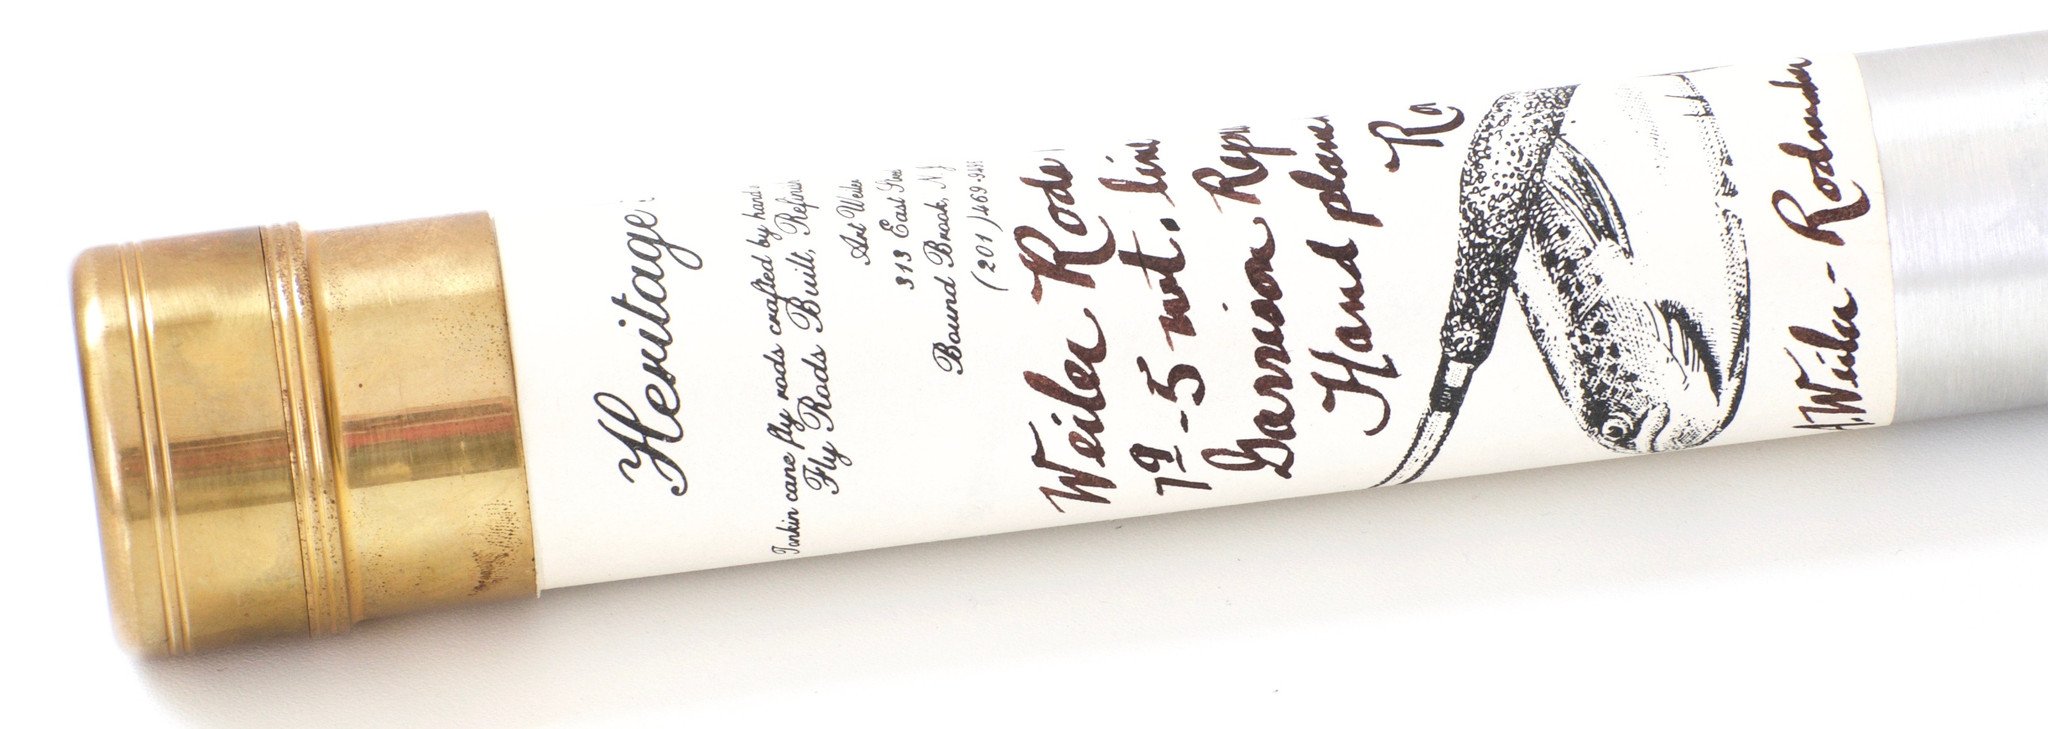 Heritage
Tonkin cane fly rods crafted by hand
Fly Rods Built, Refinis
Art Weiler
313 East
Bound Brook, NJ
(201)469-
Weiler Rods
7 9 - 5 wt. line
Garrison Rep
Hand plane
Ro
A. Weiler - Rodmaker